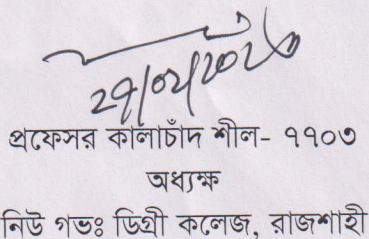 প্রফেসর কালাচাঁদ শীল- ৭৭০৩
অধ্যক্ষ
নিউ গভঃ ডিগ্রী কলেজ, রাজশাহী